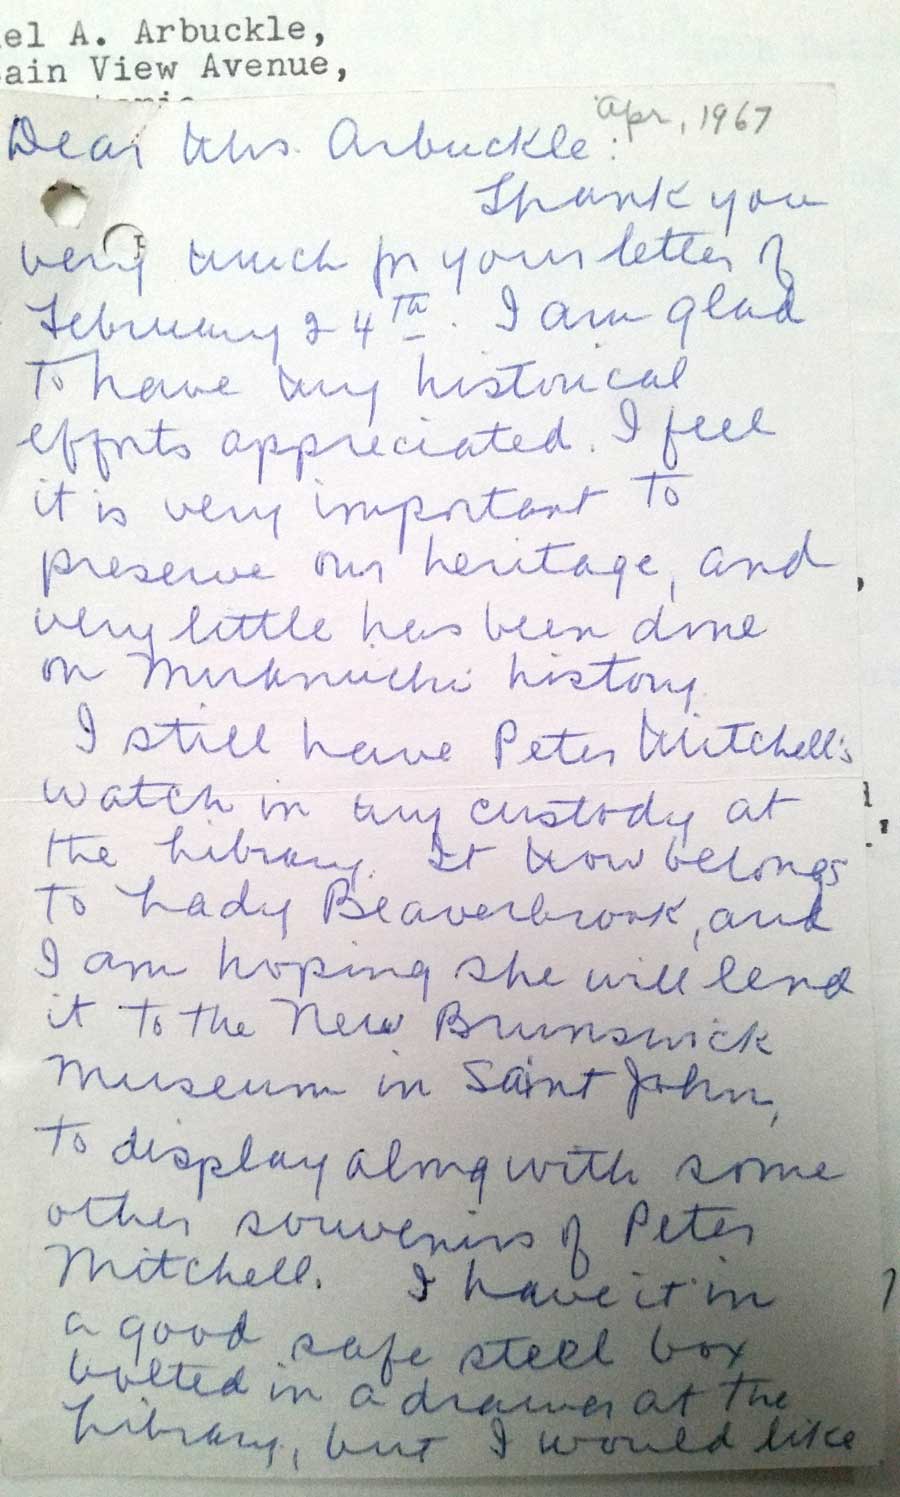 el A. Arbuckle,
ain View Avenue,
Apr, 1967
Dear Mrs. Arbuckle:
Thank you
very much for your letter of
February 24th. I am glad
to have my historical
efforts appreciated. I feel
it is very important to
preserve our heritage, and
very little has been done
on Miramichi history.
I still have Peter Mitchell's
watch in my custody at
the Library. It now belongs
to Lady Beaverbrook, and
I am hoping she will lend
it to the New Brunswick
Museum in Saint John,
to display along with some
other souvenirs of Peter
Mitchell. I have it in
a good safe steel box
bolted in a drawer at the
Library, but I would like